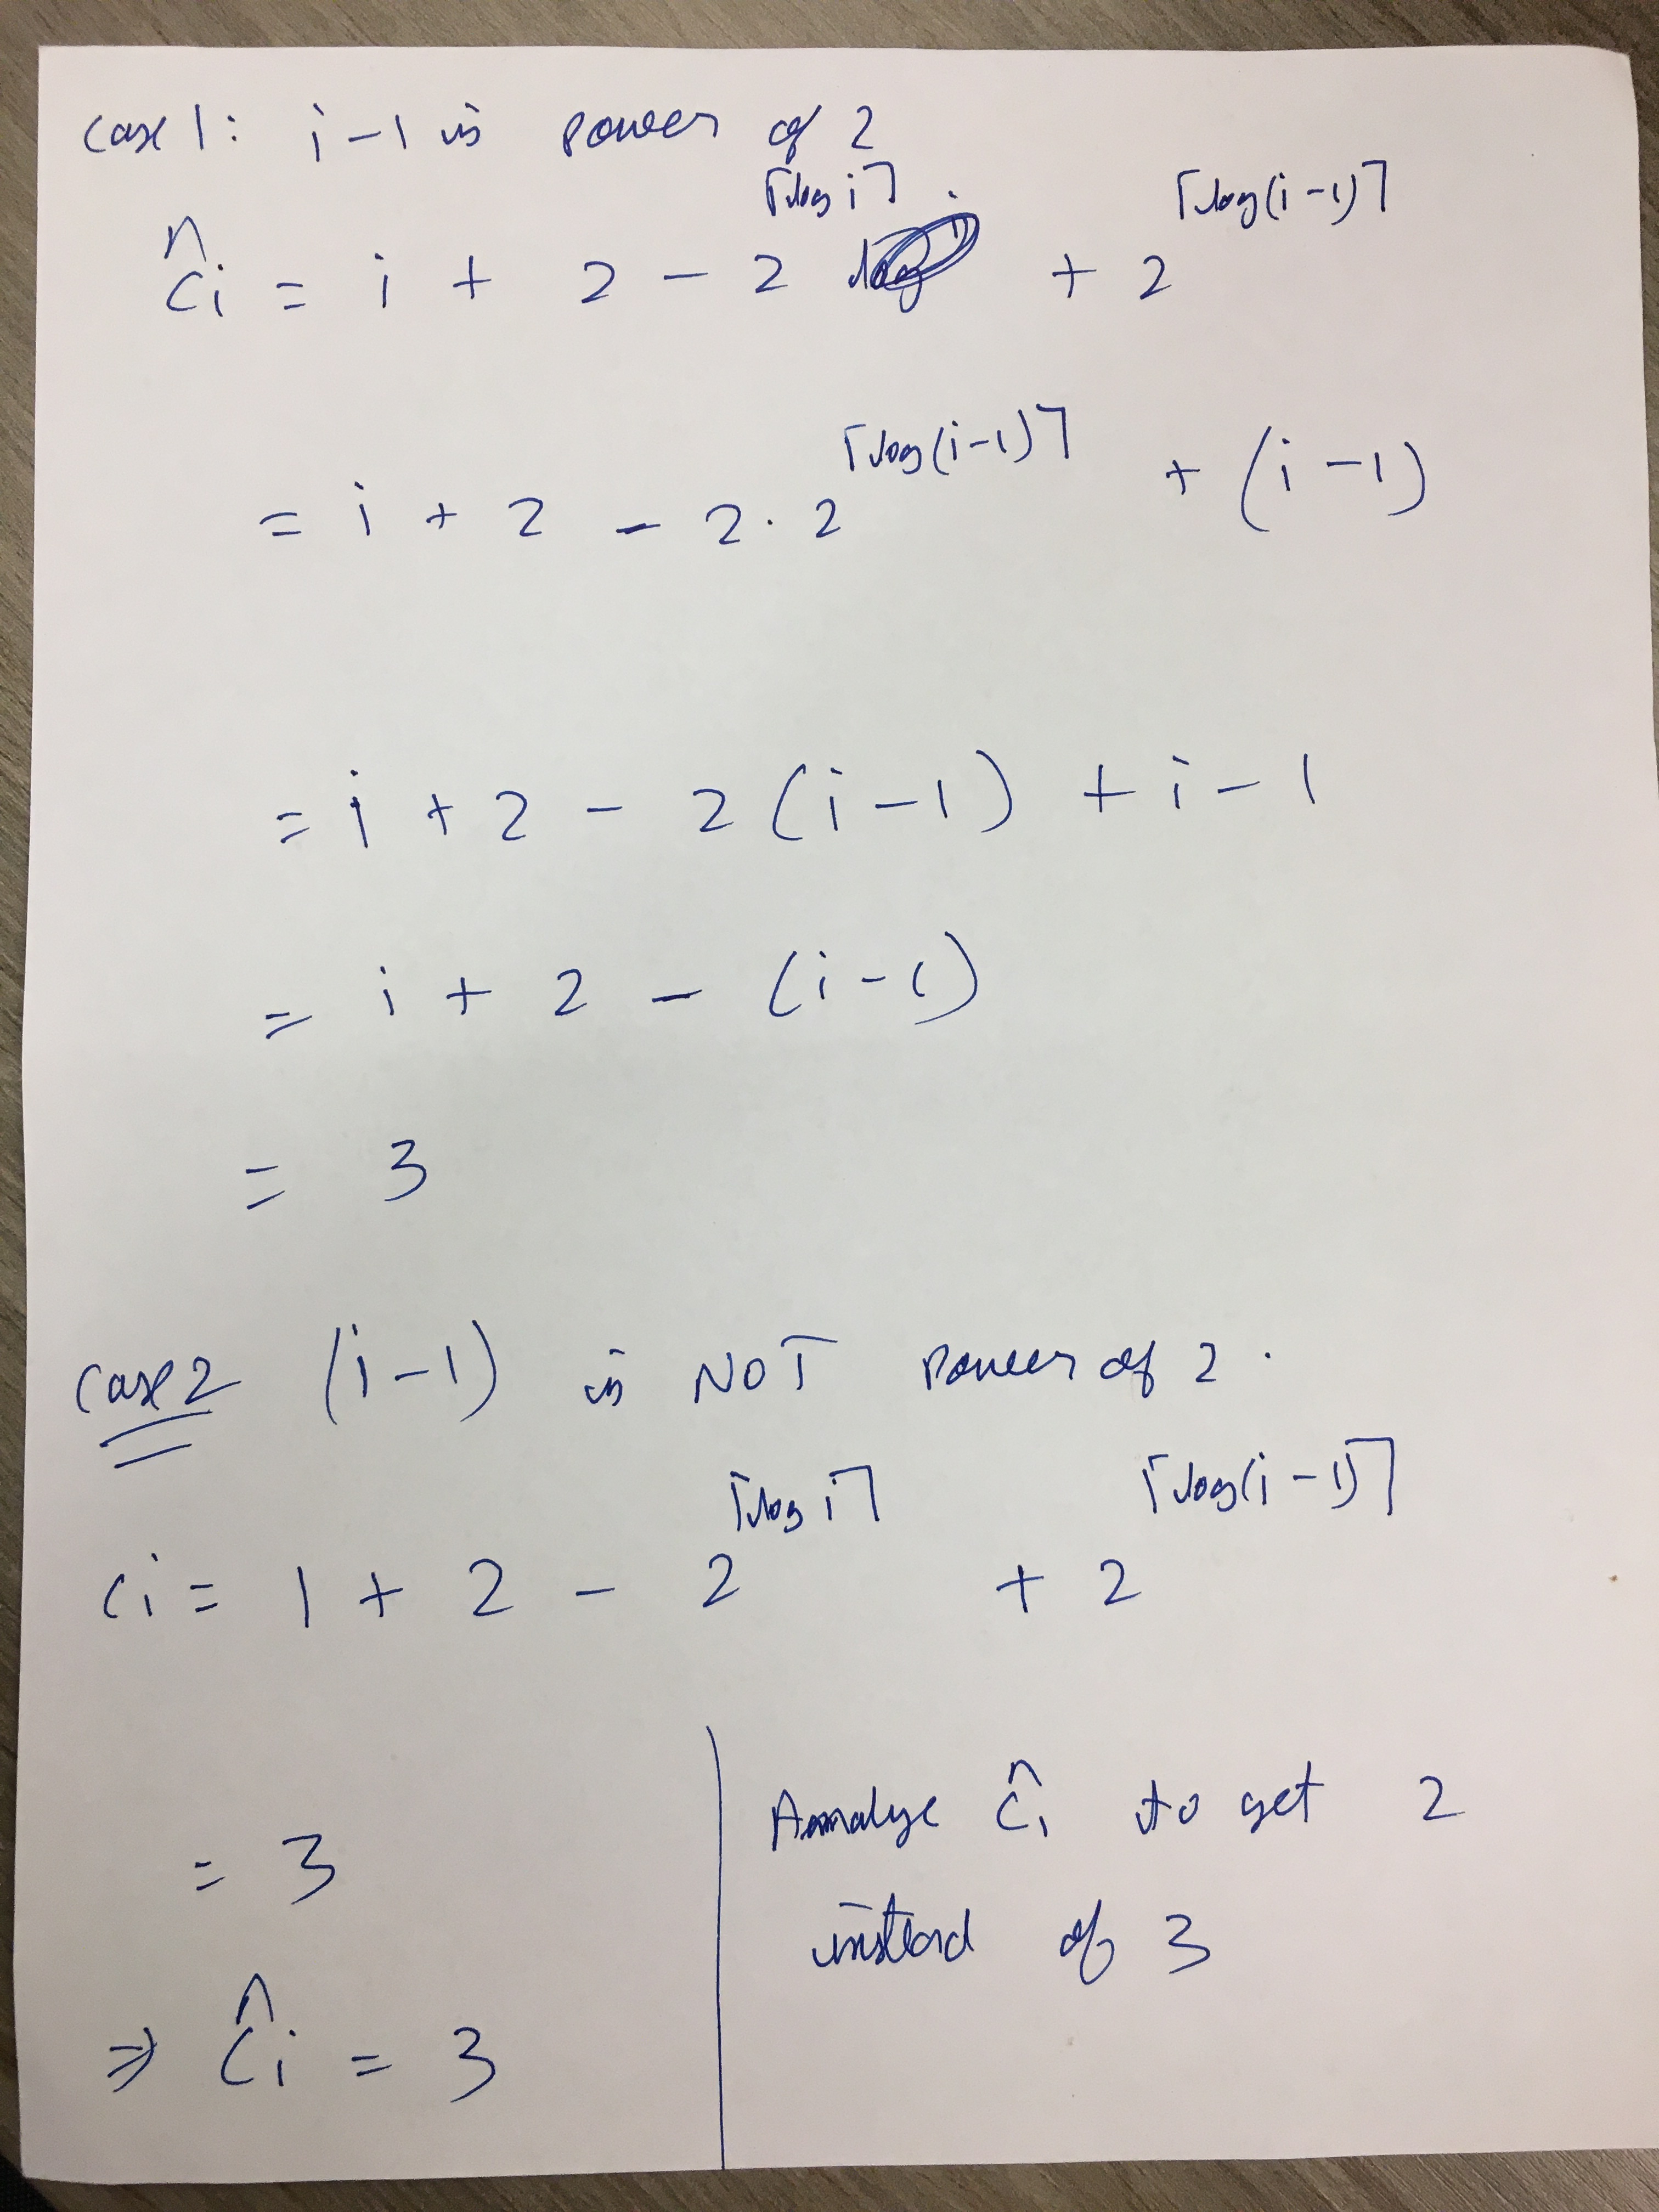 Case 1: i - 1 is power of 2
ĉi = i + 2 - 2^⌈log i⌉ + 2^⌈log(i-1)⌉
= i + 2 - 2 · 2^⌈log(i-1)⌉ + (i - 1)
= i + 2 - 2(i-1) + i - 1
= i + 2 - (i-1)
= 3
Case 2 (i-1) is NOT power of 2.
ci = 1 + 2 - 2^⌈log i⌉ + 2^⌈log(i-1)⌉
= 3
⇒ ĉi = 3
Analyse ĉi to get 2
instead of 3